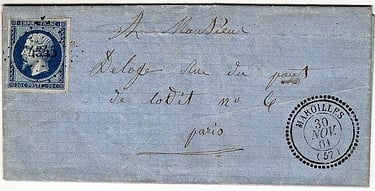 EMPIRE FRANC
4241
20c POSTES 20c
A Monsieur
Deloge rue du pont
de lodit no 6
paris
MAROILLES
30
NOV
61
(57)